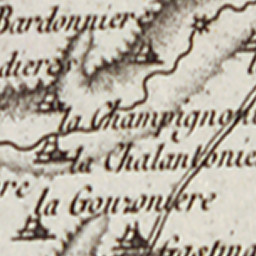 Bardonniere
dieres
la Champignon
la Chalantonie
re
la Gouzoniere
Gastin